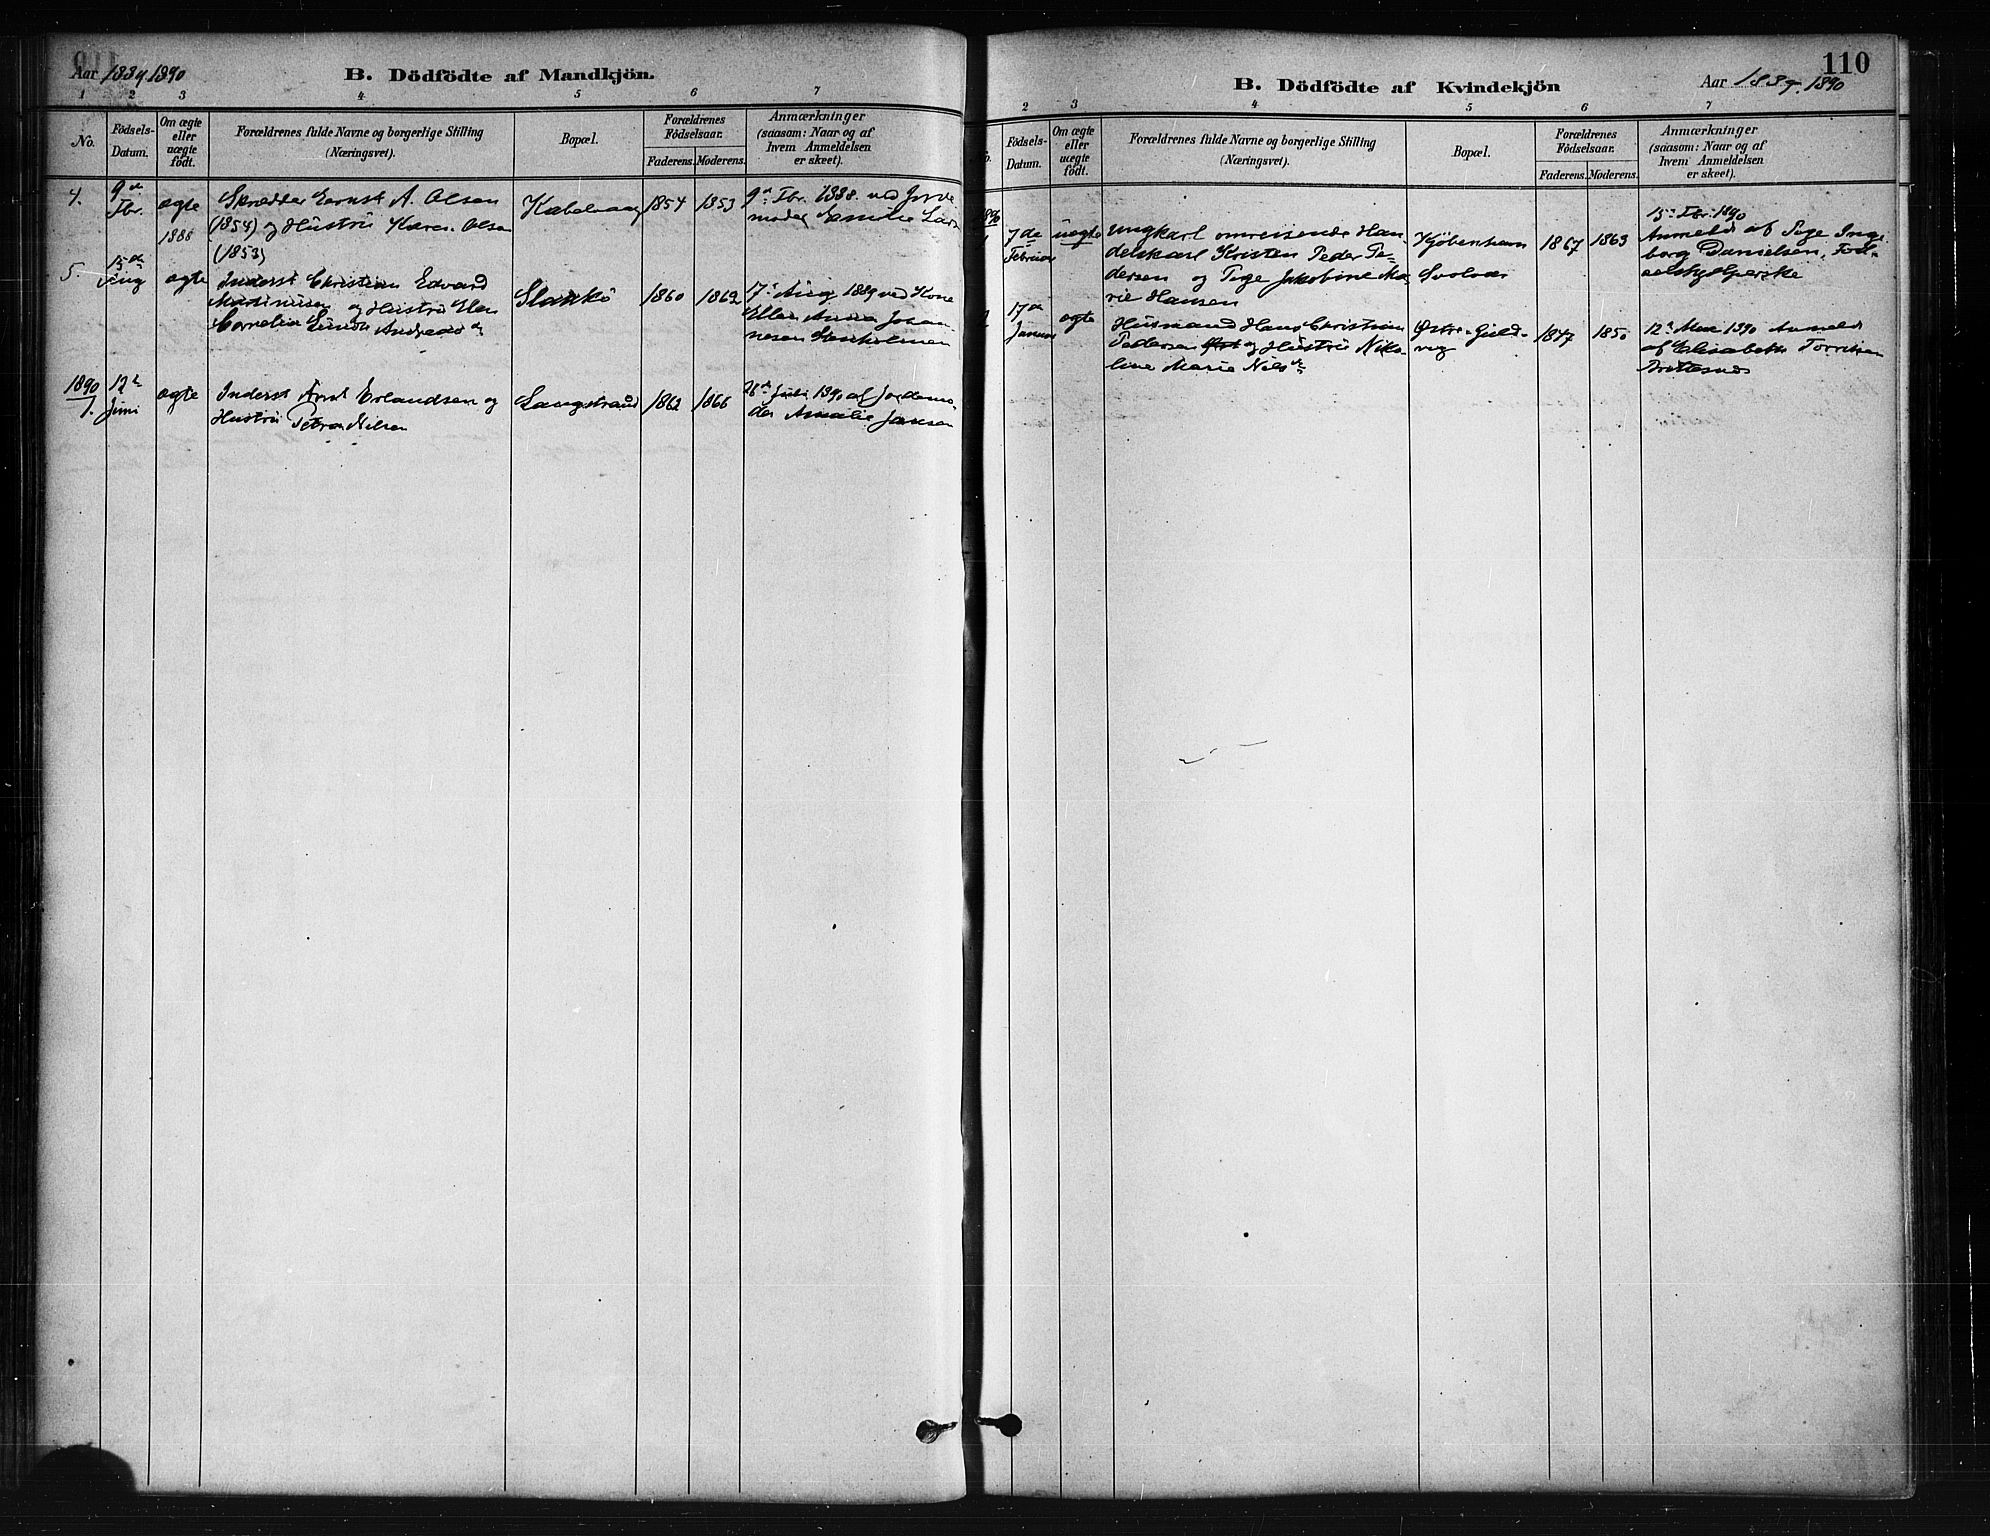 Aar 1889. 1890
B. Dödfödte af Mandkjön.
1 2 3 4 5 6 7
No.
Födsels-
Datum.
Om ægte
eller
uægte
födt.
Forældrenes fulde Navne og borgerlige Stilling
(Næringsvei).
Bopæl.
Forældrenes
Födselsaar.
Faderens. Moderens.
Anmærkninger
(saasom: Naar og af
hvem Anmeldelsen
er skeet).
4.
9de
Fbr.
1888
ægte
Skrædder Ernst A. Olsen
(1854) og Hustru Karen Olsen
(1853)
Kabelvaag
1854
1853
9de Fbr. 1888. ved Jorde
moder
5.
15de
Aug
ægte
Inderst Christian Edvard
Martinusen og Hustru
Cornelia Andreasdr
1860
1862
17de Aug 1889 ved Kone
Ellen Anna Johan-
nesen
1890
1.
12te
Juni
ægte
Inderst Arnt Erlandsen og
Hustru Petra Nilsen
Langstrand
1862
1866
af Jordemo-
der Amalie Jansen
110
B. Dödfödte af Kvindekjön
Aar 1889. 1890
2 3 4 5 6 7
Födsels-
Datum.
Om ægte
eller
uægte
födt.
Forældrenes fulde Navne og borgerlige Stilling
(Næringsvei).
Bopæl.
Forældrenes
Födselsaar.
Faderens. Moderens.
Anmærkninger
(saasom: Naar og af
hvem Anmeldelsen
er skeet).
7de
Februar
uægte
Ungkarl omreisende Han-
delskarl Kristen Peder Pe-
dersen og Pige Jakobine Ma-
rie Hansen
Kjøbenhavn
Svolvær
1867
1863
15de Fbr. 1890
Anmeldt af Pige Inge
borg Danielsen, Fød-
selshjelperske
2
17de
Januar
ægte
Husmand Hans Christian
Pedersen og Hustru Niko-
line Marie Nilsdr
Østre-Guld-
vig
1847
1850
12te Mai 1890 Anmeldt
af Elisabeth Torrisen
Brettesnes